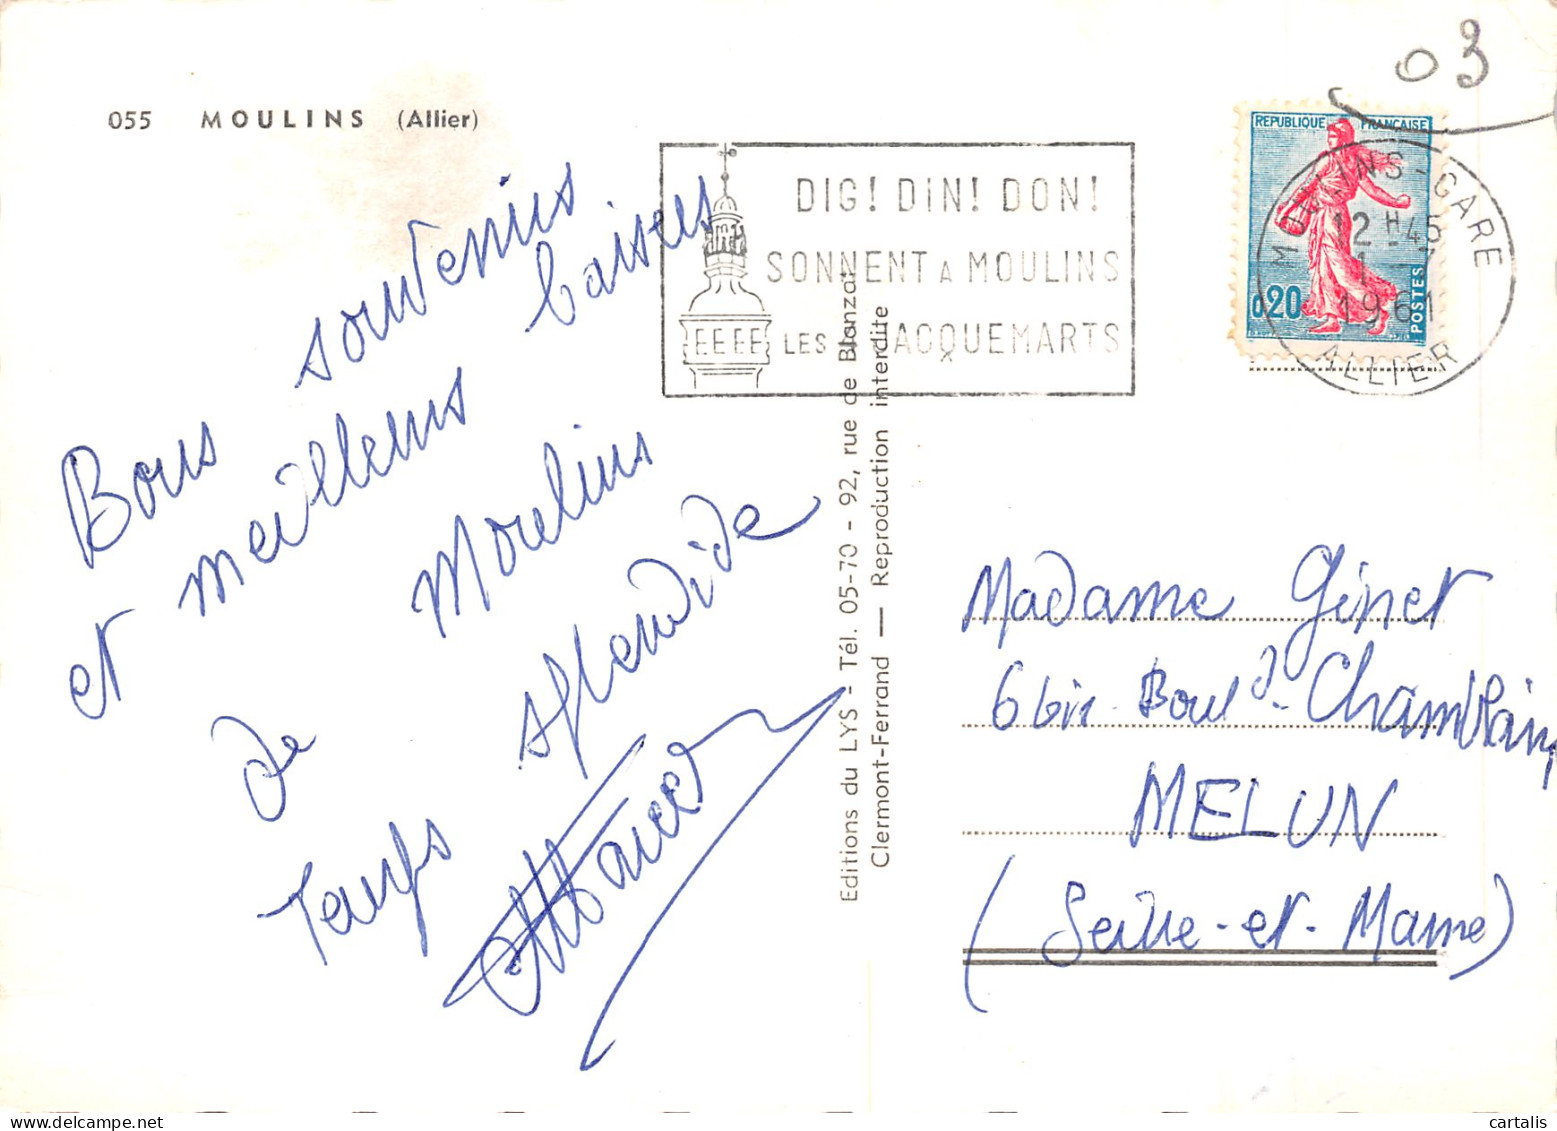 055 MOULINS (Allier)
Bons souvenirs
et meilleurs baisers
de Moulins
Temps splendide
DIG! DIN! DON!
SONNENT A MOULINS
LES JACQUEMARTS
REPUBLIQUE FRANÇAISE
0,20
POSTES
MOULINS-GARE
12H45
1961
ALLIER
03
Editions du LYS - Tél. 05-70 - 92, rue de Blanzat
Clermont-Ferrand — Reproduction interdite
Madame Génet
6 bis Boul.d Chamblain
MELUN
(Seine-et-Marne)
cartalis